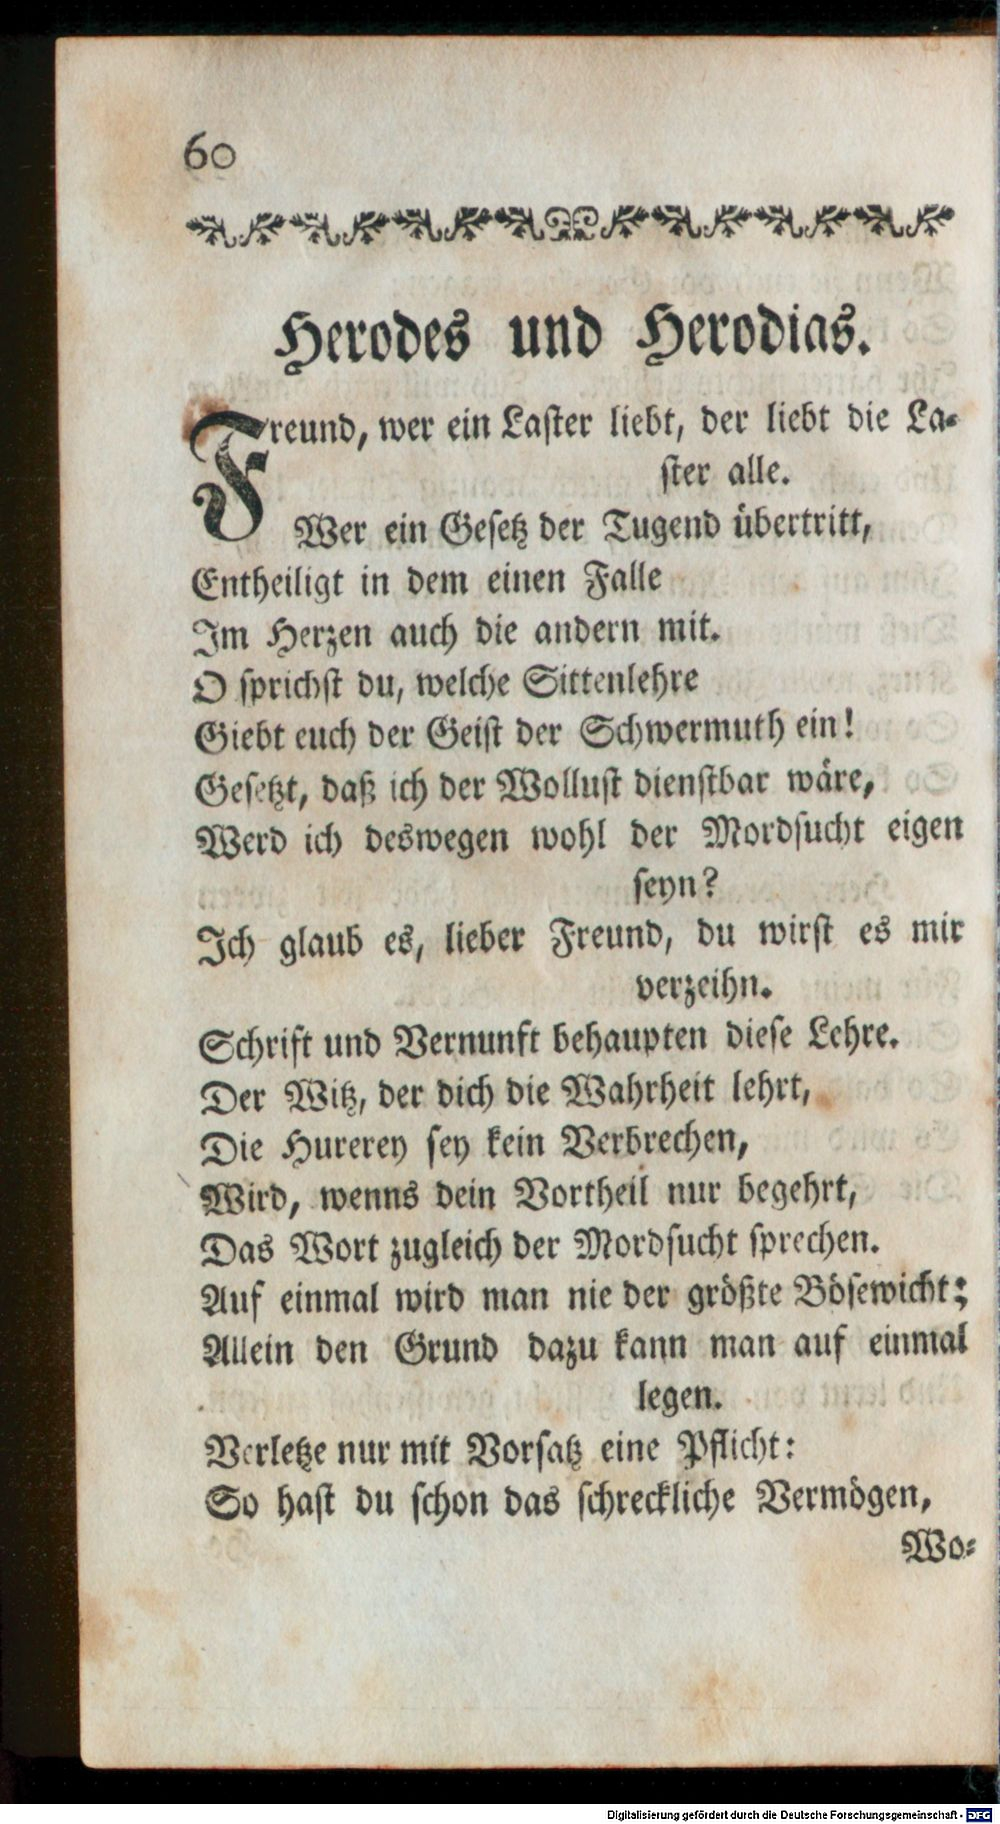 60
Herodes und Herodias.
Freund, wer ein Laster liebt, der liebt die La-
ster alle.
Wer ein Gesetz der Tugend übertritt,
Entheiligt in dem einen Falle
Im Herzen auch die andern mit.
O sprichst du, welche Sittenlehre
Giebt euch der Geist der Schwermuth ein!
Gesetzt, daß ich der Wollust dienstbar wäre,
Werd ich deswegen wohl der Mordsucht eigen
seyn?
Ich glaub es, lieber Freund, du wirst es mir
verzeihn.
Schrift und Vernunft behaupten diese Lehre.
Der Witz, der dich die Wahrheit lehrt,
Die Hurerey sey kein Verbrechen,
Wird, wenns dein Vortheil nur begehrt,
Das Wort zugleich der Mordsucht sprechen.
Auf einmal wird man nie der größte Bösewicht;
Allein den Grund dazu kann man auf einmal
legen.
Verletze nur mit Vorsatz eine Pflicht:
So hast du schon das schreckliche Vermögen,
Wo-
Digitalisierung gefördert durch die Deutsche Forschungsgemeinschaft - DFG